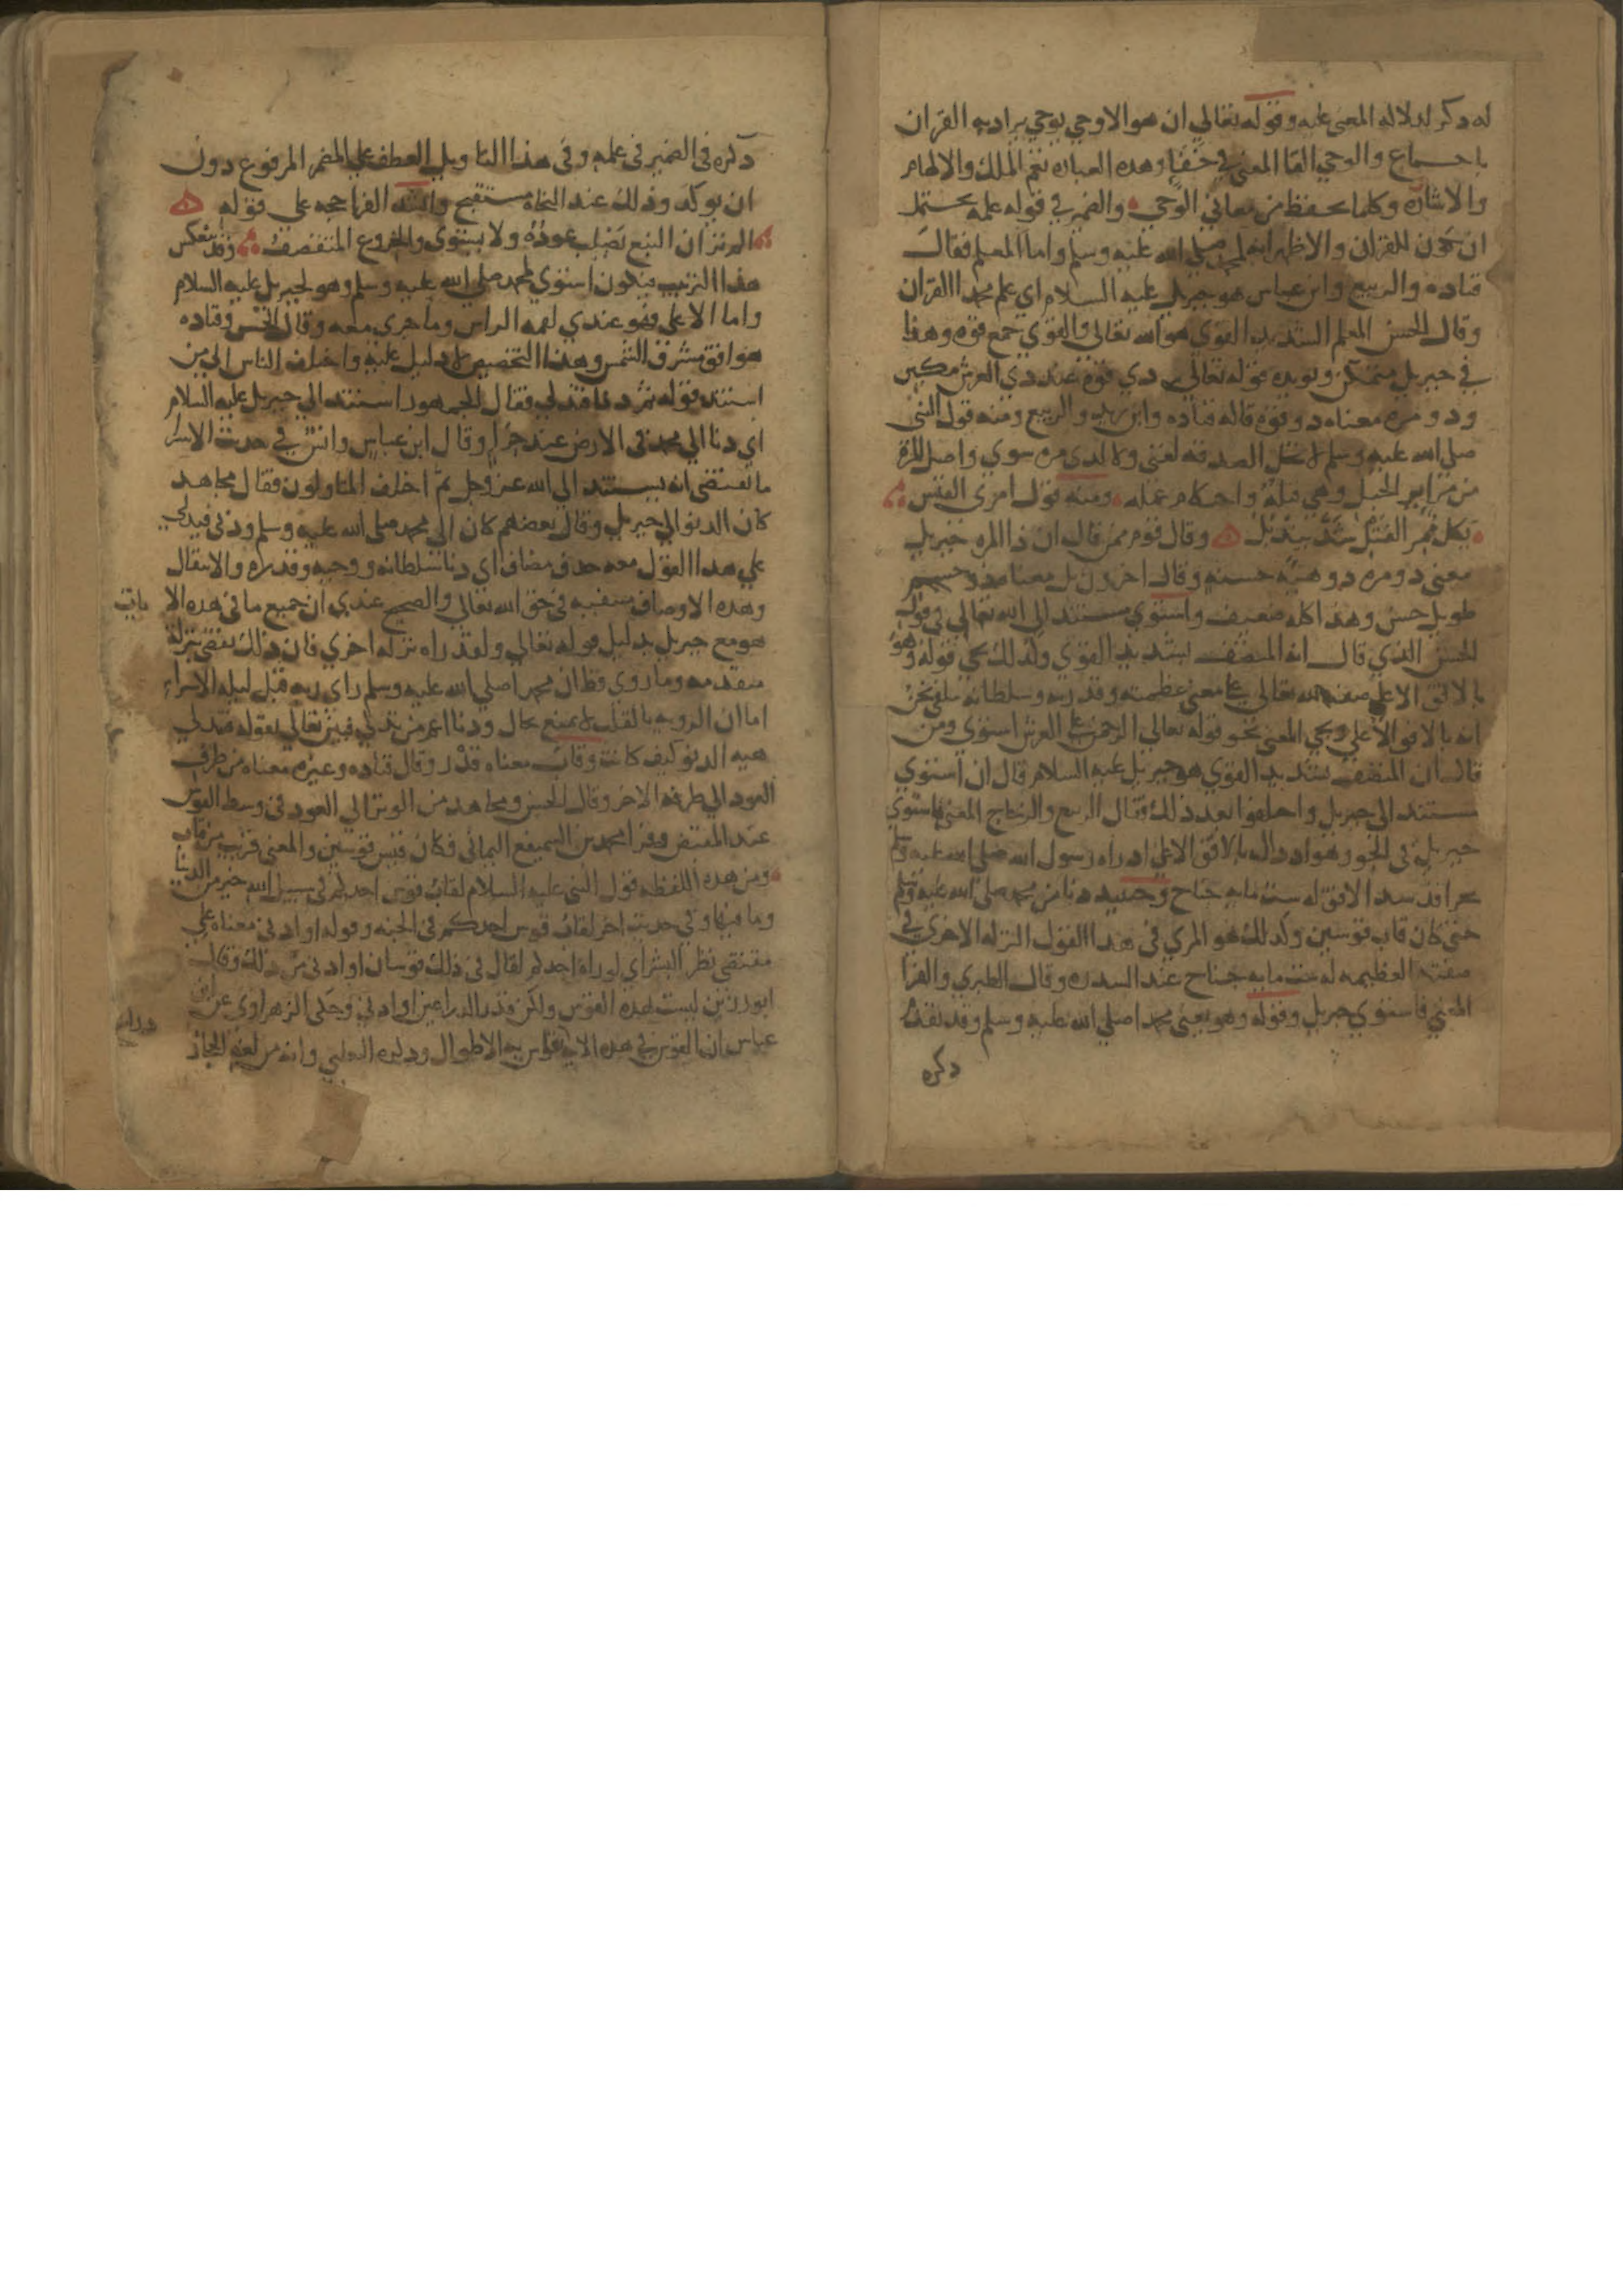 له ذكر لدلالة المعنى عليه وقوله تعالي ان هو الا وحي يوحي يراد به القران
باجماع والوحي القا المعنى في خفا وهذه العباره تعم الملك والالهام
والاشاره وكلما يحفظ من معاني الوحي والضمير في قوله علمه يحتمل
ان يكون للقران والاظهر انه لمحمد صلى الله عليه وسلم واما المعلم فقال
قتاده والربيع وابن عباس هو جبريل عليه السلام اي علم محمدا القران
وقال الحسن المعلم الشديد القوي هو الله تعالى والقوي جمع قوه وهذا
في جبريل متمكن ويويده قوله تعالي ذي قوة عند ذي العرش مكين
وذو مره معناه ذو قوه قاله قتاده وابن زيد والربيع ومنه قول النبي
صلى الله عليه وسلم لا تحل الصدقه لغني ولا لذي مره سوي واصل المرة
من مراير الحبل وهي فتله واحكام عمله ومنه قول امرئ القيس
بكل ممر الفتل شدت بيذبل وقال قوم ممن قال ان ذا المره جبريل
معنى ذو مره ذو هيئة حسنه وقال اخرون بل معناه ذو جسم
طويل حسن وهذا كله ضعيف واستوي مستند الى الله تعالى في قول
الحسن الذي قال انه المتصف بشديد القوي وكذلك يجي قوله وهو
بالافق الاعلي صفة لله تعالي علي معنى عظمته وقدرته وسلطانه تلقي نحن
انه بالافق الاعلي ويجي المعنى نحو قوله تعالى الرحمن على العرش استوى ومن
قال ان المتصف بشديد القوي هو جبريل عليه السلام قال ان استوي
مستند الى جبريل واختلفوا بعد ذلك فقال الربيع والزجاج المعنى فاستوى
جبريل في الجو وهو اذ ذاك بالافق الاعلي اذ راه رسول الله صلى الله عليه وسلم
بحرا قد سد الافق له ست مايه جناح وحينيذ دنا من محمد صلى الله عليه وسلم
حتى كان قاب قوسين وكذلك هو المري في هذا القول النزلة الاخري في
صفته العظيمه له ست مايه جناح عند السدره وقال الطبري والفرا
المعني فاستوي جبريل وقوله وهو يعني محمدا صلي الله عليه وسلم وقد تقدم
ذكره
ذكره في الضمير في علمه وفي هذا التاويل العطف علي المضمر المرفوع دون
ان يوكد وذلك عند النحاة مستقبح وانشد الفرا حجه على قوله
الم تر ان النبع يصلب عوده ولا يستوي والخروع المتقصف وقد ينعكس
هذا الترتيب فيكون استوي لمحمد صلى الله عليه وسلم وهو لجبريل عليه السلام
واما الاعلى فهو عندي لقمة الراس وما جرى معه وقال الحسن وقتاده
هو افق مشرق الشمس وهذا التخصيص لا دليل عليه واختلف الناس الى من
استند قوله ثم دنا فتدلي فقال الجمهور استند الي جبريل عليه السلام
اي دنا الي محمد في الارض عند حرا وقال ابن عباس وانس في حديث الاسرا
ما يقتضي انه يستند الي الله عز وجل ثم اختلف المتاولون فقال مجاهد
كان الدنو الي جبريل وقال بعضهم كان الى محمد صلى الله عليه وسلم ودنى فتدلي
علي هذا القول معه حذف مضاف اي دنا سلطانه ووحيه وقدره والانتقال
وهذه الاوصاف منتفيه في حق الله تعالي والصحيح عندي ان جميع ما في هذه الا يات
هو مع جبريل بدليل قوله تعالي ولقد راه نزله اخري فان ذلك يقضي بنزلة
متقدمه وما روي قط ان محمدا صلي الله عليه وسلم راى ربه قبل ليلة الاسراء
اما ان الرويه بالقلب لا تمنع بحال ودنا اعم من تدلي فبين تعالي بقوله فتدلي
هيه الدنو كيف كانت وقاب معناه قدر وقال قتاده وغيره معناه من طرف
العود الي طرفه الاخر وقال الحسن ومجاهد من الوتر الي العود في وسط القوس
عند المقبض وقرا محمد بن السميفع اليماني فكان قيس قوسين والمعنى قريب من قاب
ومن هذه اللفظه قول النبي عليه السلام لقاب قوس احدكم في سبيل الله خير من الدنيا
وما فيها وفي حديث اخر لقاب قوس احدكم في الجنه وقوله او ادنى معناه علي
مقتضى نظر البشر اي لو راه احدكم لقال في ذلك قوسان او ادنى من ذلك وقال
ابو رزين ليست بهذه القوس ولكن قدر الذراعين او ادني وحكى الزهراوي عن ابن
عباس ان القوس في هذه الاية ذراع تقاس به الاطوال وذكره الثعلبي وانه من لغة الحجاز